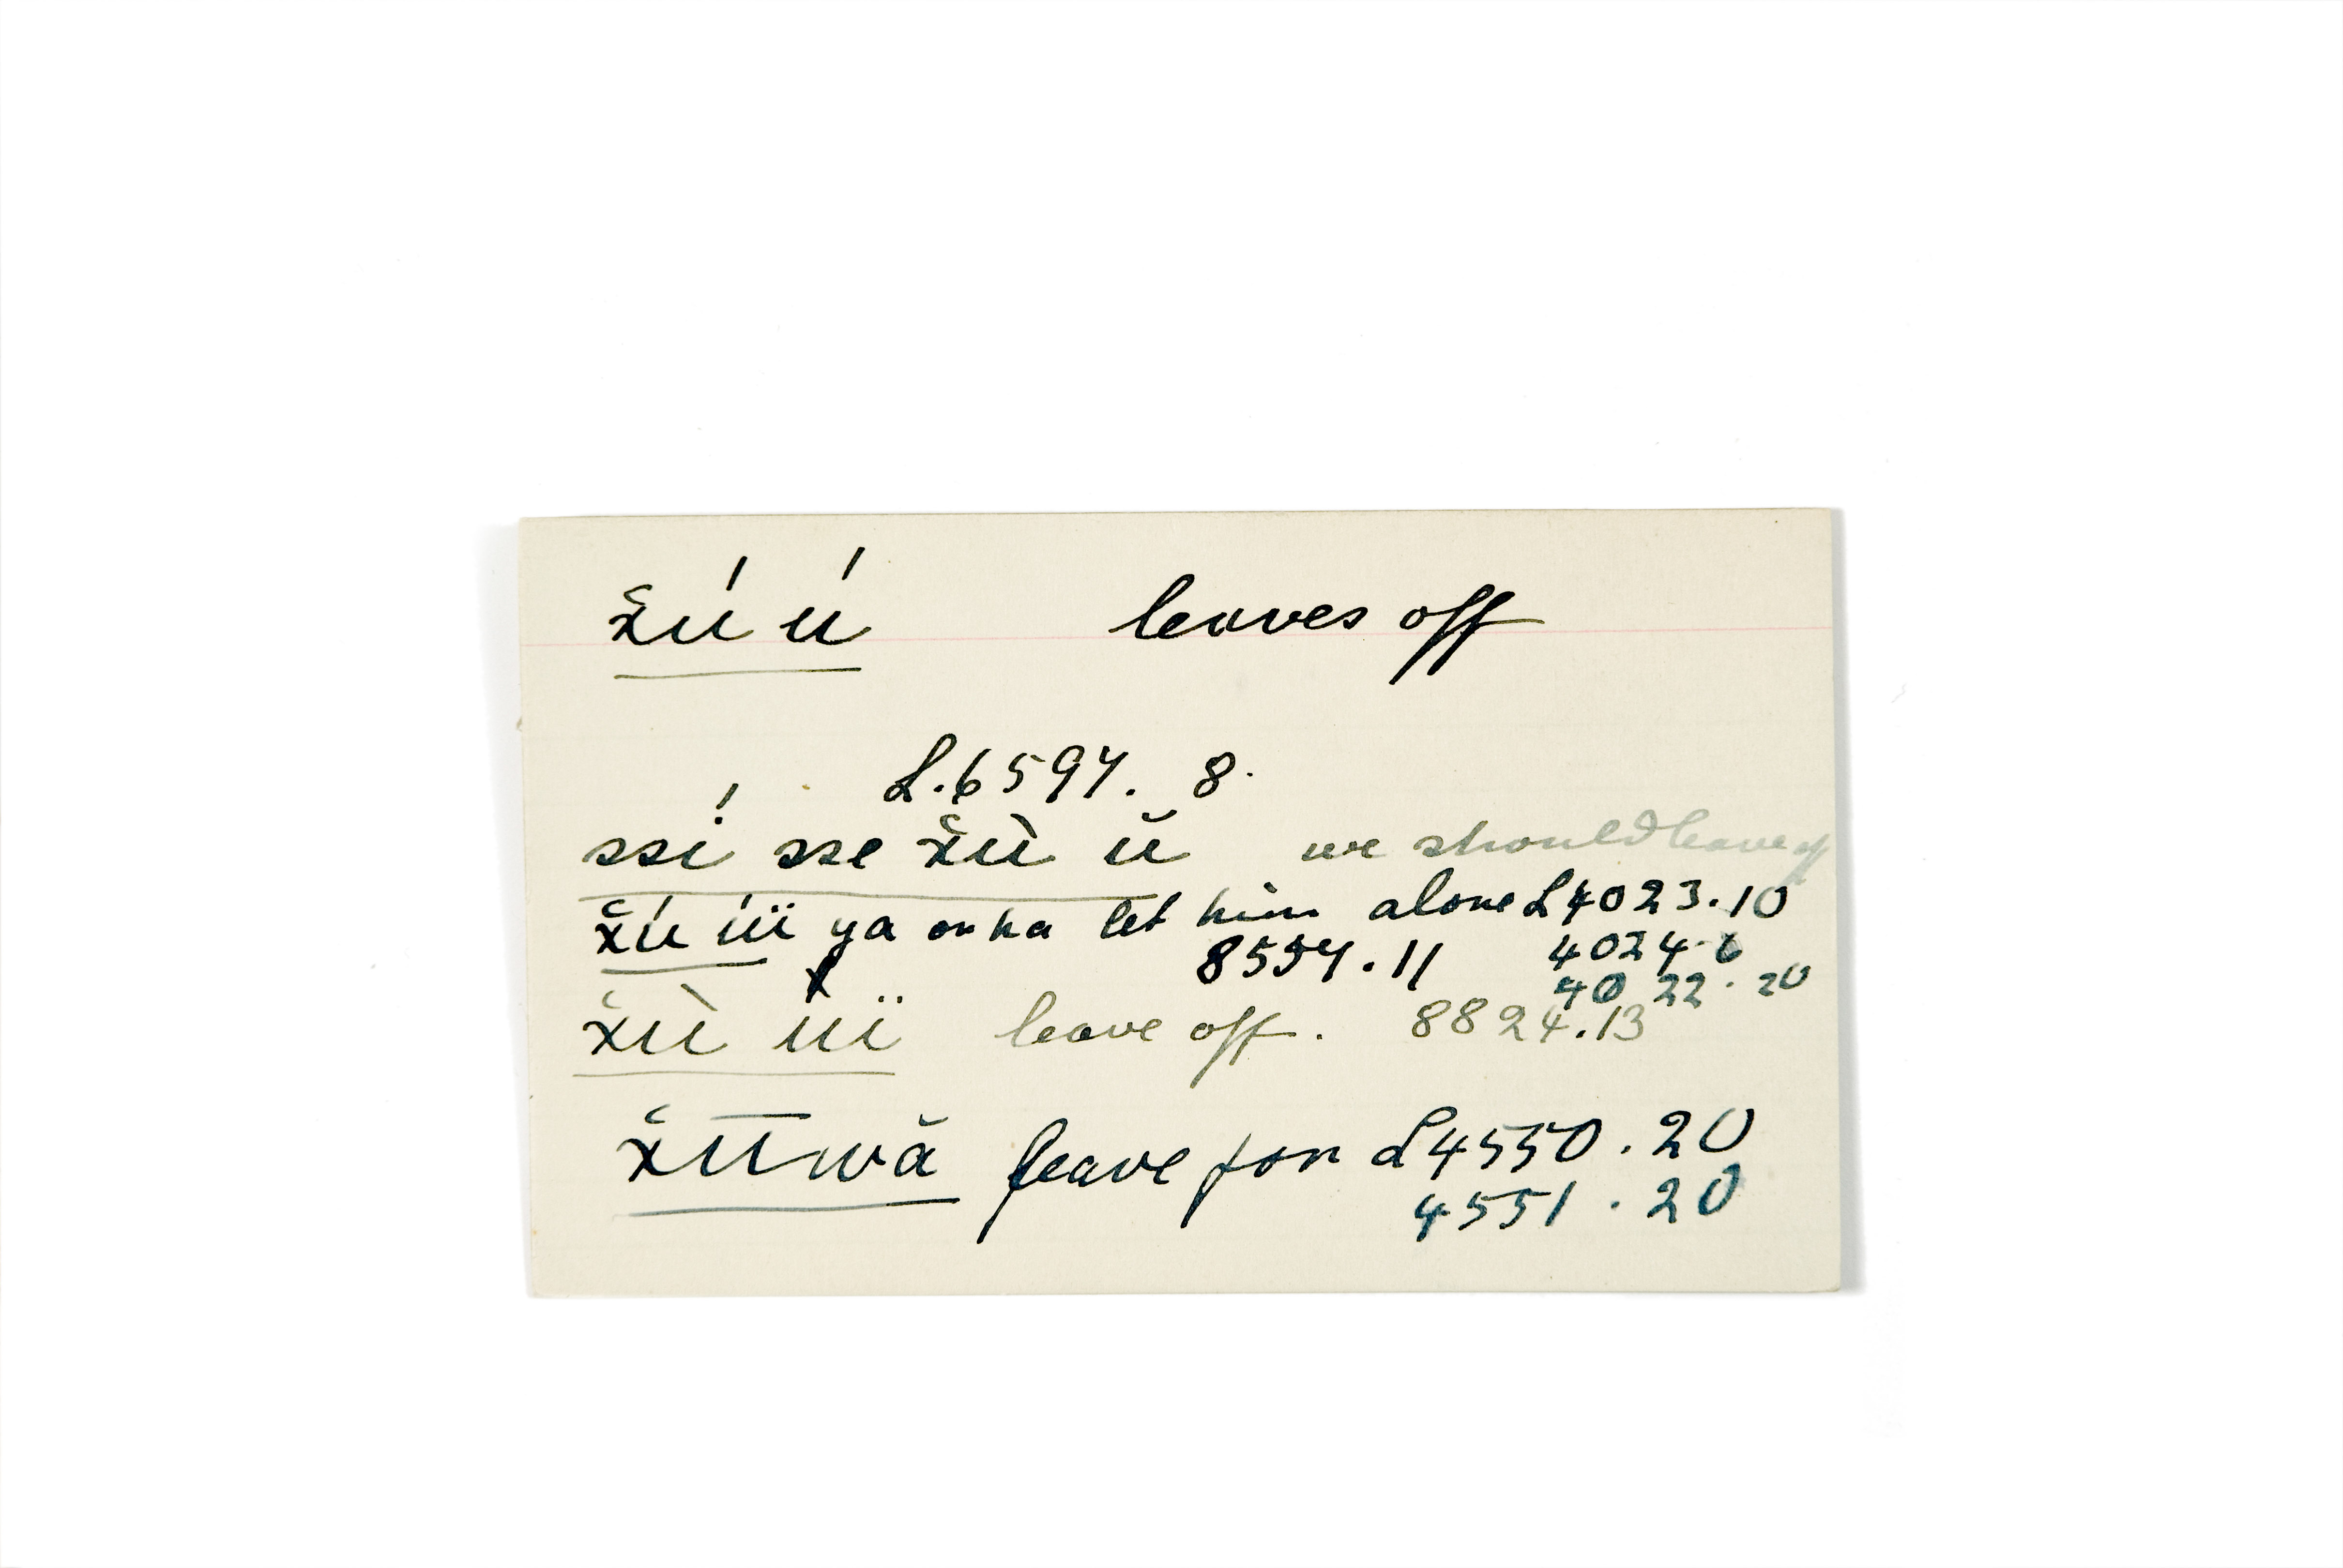 x̌ú ú leaves off
L.6597. 8.
ssí! sse x̌ù ŭ we should leave off
x̌ú úï ya onha let him alone L4023.10
8557.11 4024.6
4022.20
x̌ù uï leave off. 8824.13
x̌ūwă leave for L4550.20
4551.20